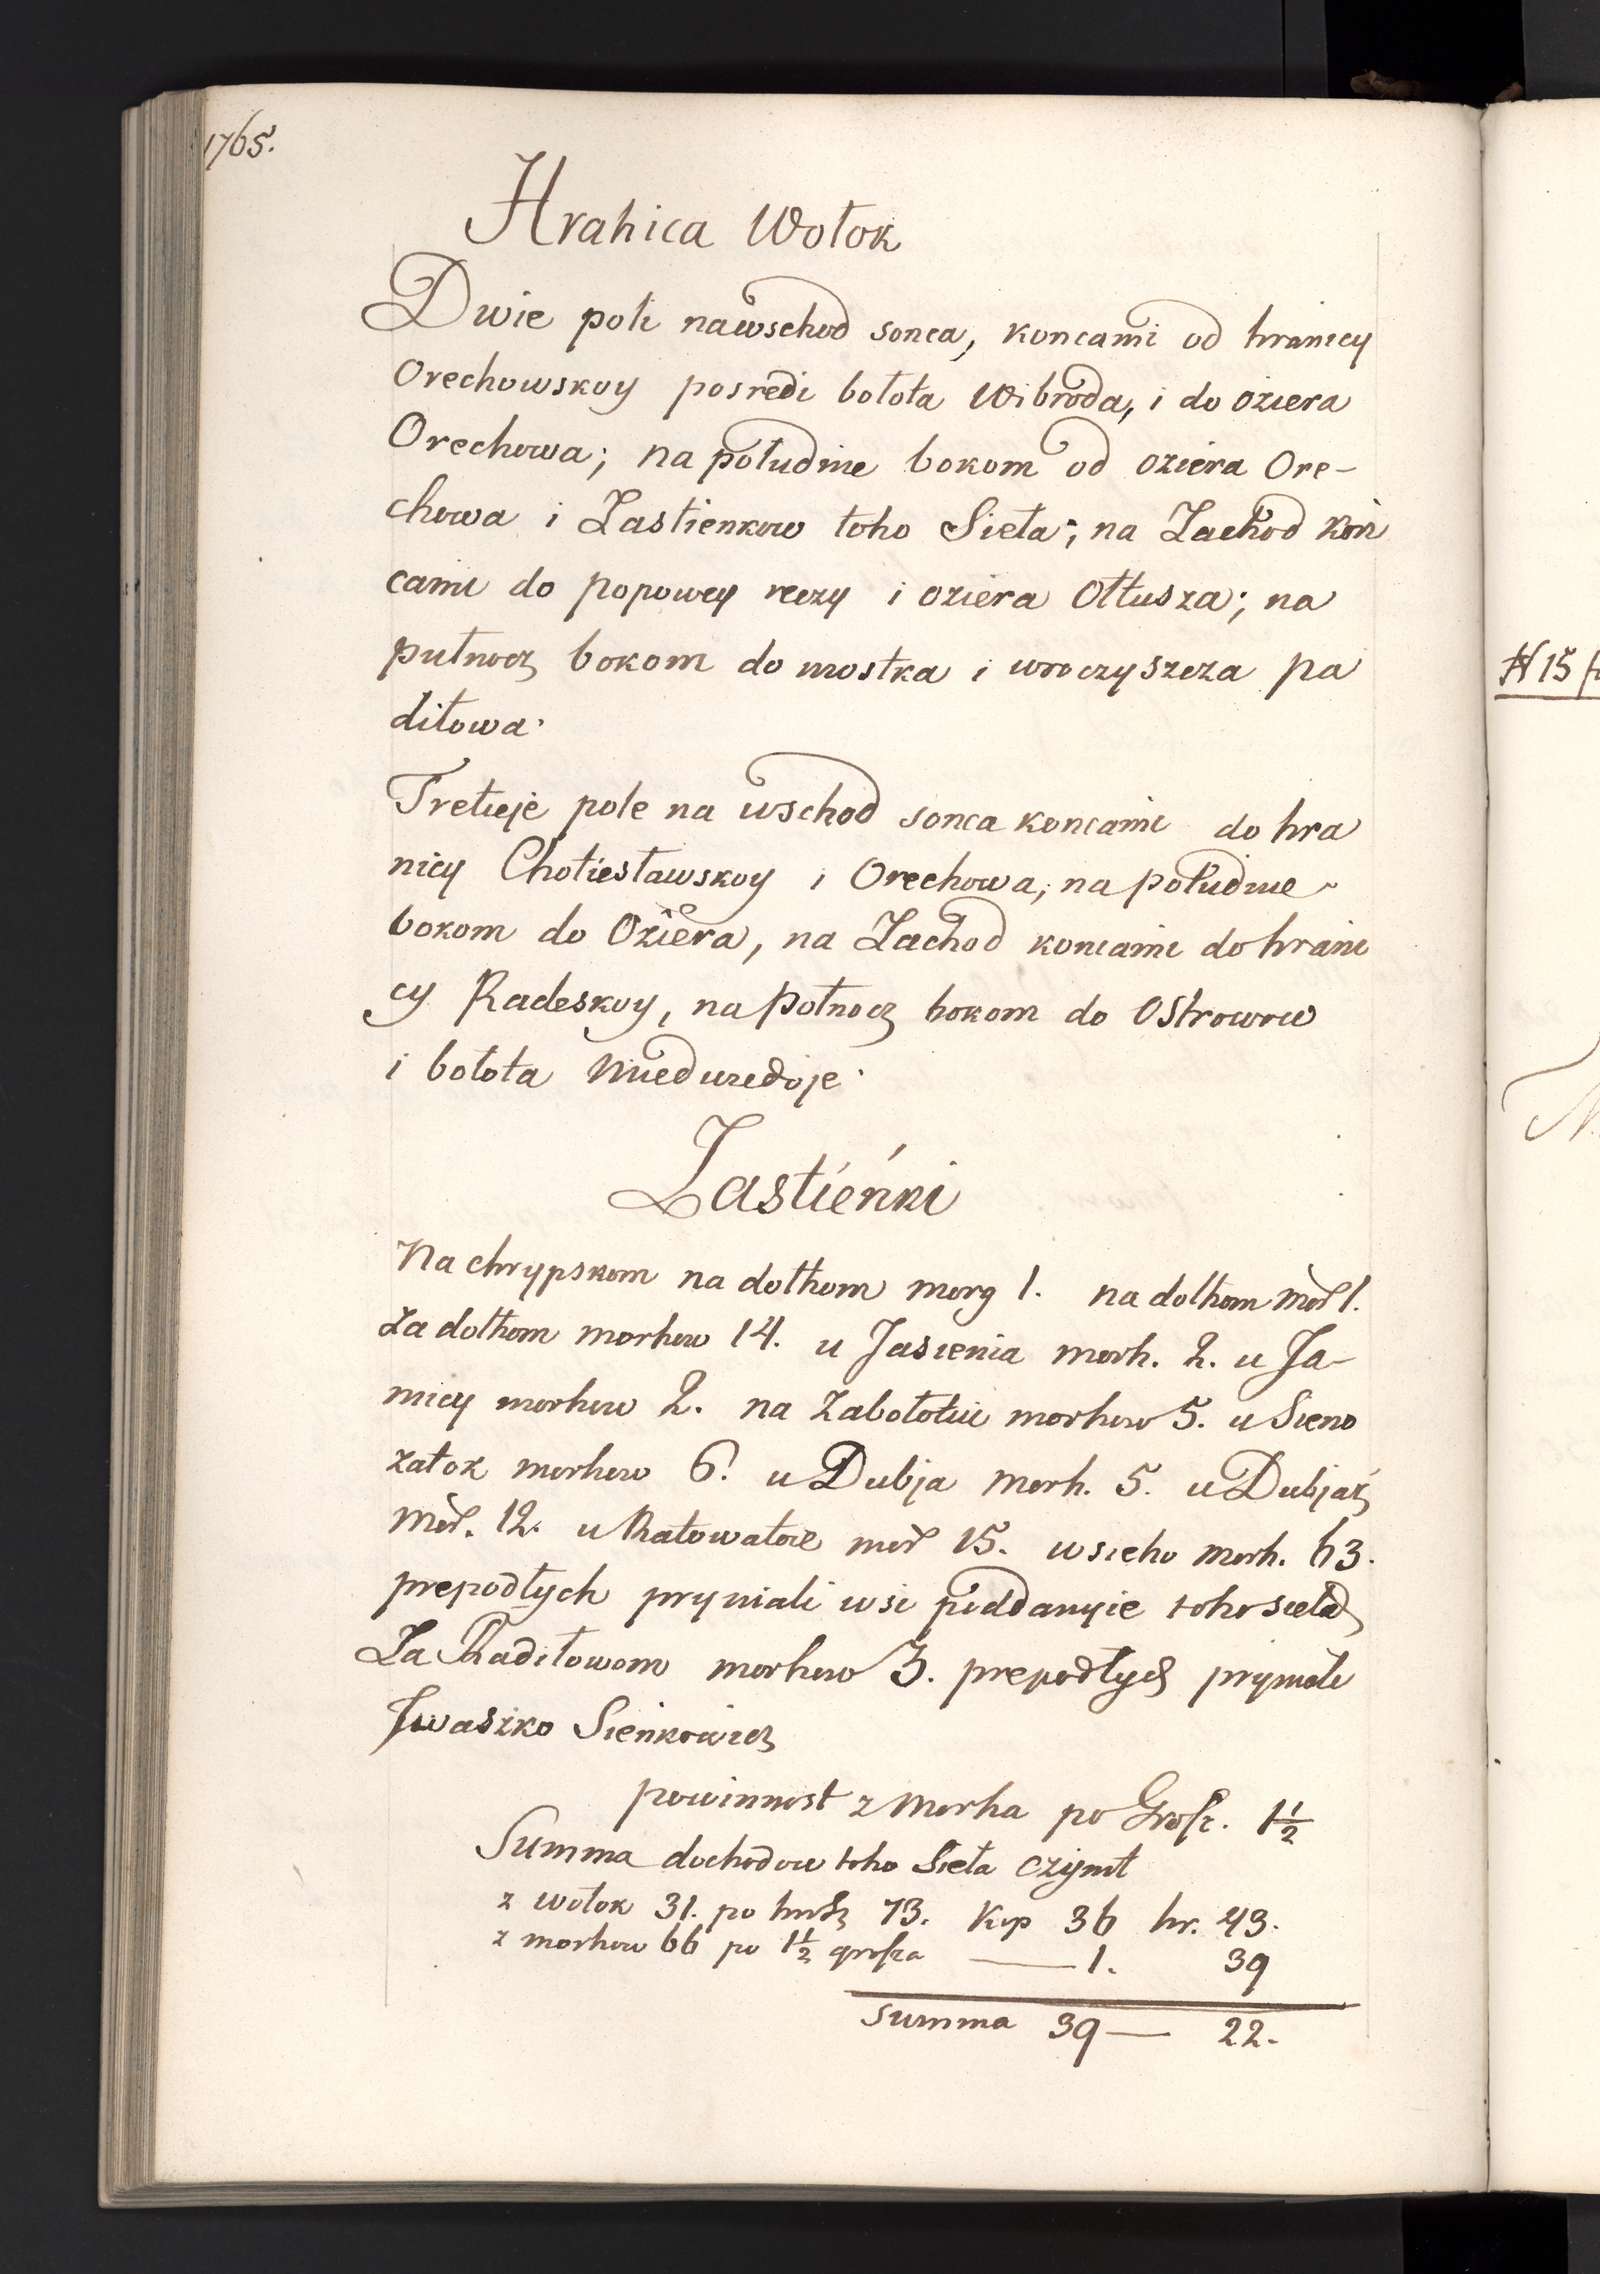 1765.
Hranica Wołok
Dwie poli nawschod sonca, koncami od hranicy
Orechowskoy posredi bołota Wibroda, i do oziera
Orechowa; na południe bokom od oziera Ore-
chowa i Zastienkow toho Sieła; na Zachod kon
cami do popowey reczy i oziera Ołtusza; na
pułnocz bokom do mostka i uroczyszcza pa
diłowa.
Tretieje pole na wschod sonca koncami do hra
nicy Chotiesławskoy i Orechowa, na południe
bokom do Oziera, na Zachod koncami do hrani
cy Radeskoy, na połnocz bokom do Ostrowow
i bołota
Zastieńki
Na chrypskom na dołhom morg 1. na dolhom mor 1.
Za dołhom morhow 14. u Jasienia morh. 2. u Ja-
micy morhow 2. na Zabołotiu morhow 5. u Sieno
zatok morhow 6. u Dubja morh. 5. u Dubjaz
mor. 12. u mor 15. wsieho morh. 63.
prepodłych pryniali wsi poddanyie toho sieła
Za Radiłowom morhow 3. prepodłych
Iwaszko Sieńkowicz
powinnost z morha po Grosz. 1½
Summa dochodow toho Sieła czynit
z wołok 31. po hrosz 73. Kop 36 hr. 43.
z morhow 66 po 1½ grosza — 1. 39
Summa 39 — 22.
N 15